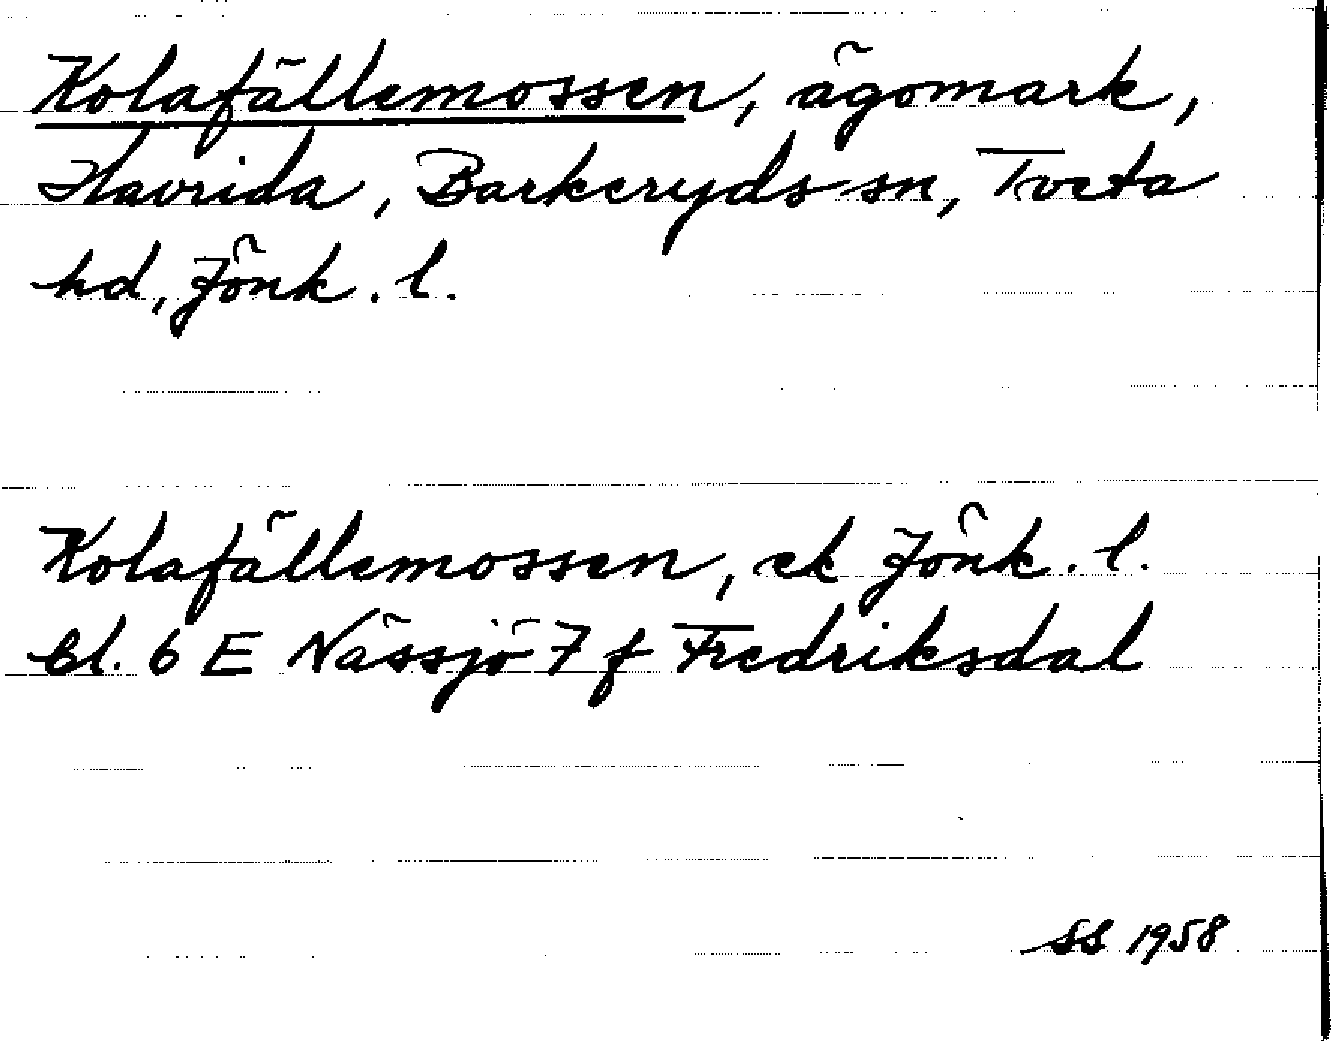 Kolafällemossen, ägomark,
Havrida, Barkeryds sn, Tveta
hd, Jönk. l.
Kolafällemossen, ek Jönk. l.
bl. 6 E Nässjö 7 f Fredriksdal
SS 1958